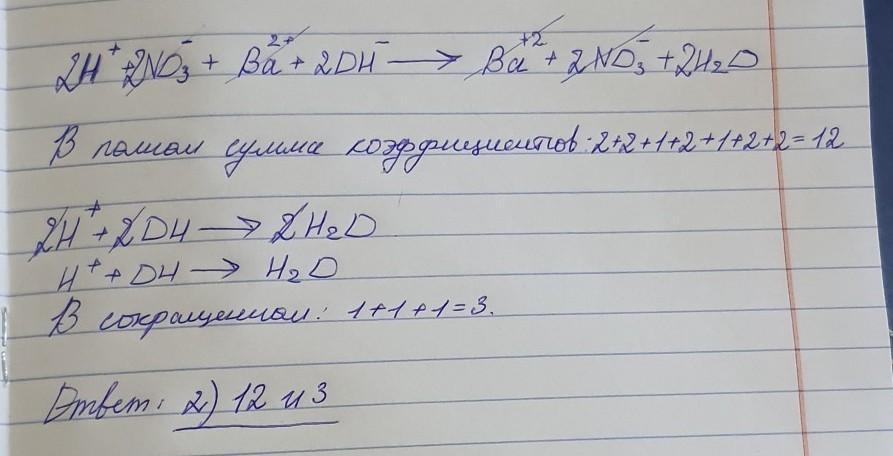 2H⁺ + 2NO₃⁻ + Ba²⁺ + 2OH⁻ → Ba⁺² + 2NO₃⁻ + 2H₂O
В полном сумма коэффициентов: 2+2+1+2+1+2+2=12
2H⁺ + 2OH → 2H₂O
H⁺ + OH → H₂O
В сокращенном: 1+1+1=3.
Ответ: 2) 12 и 3